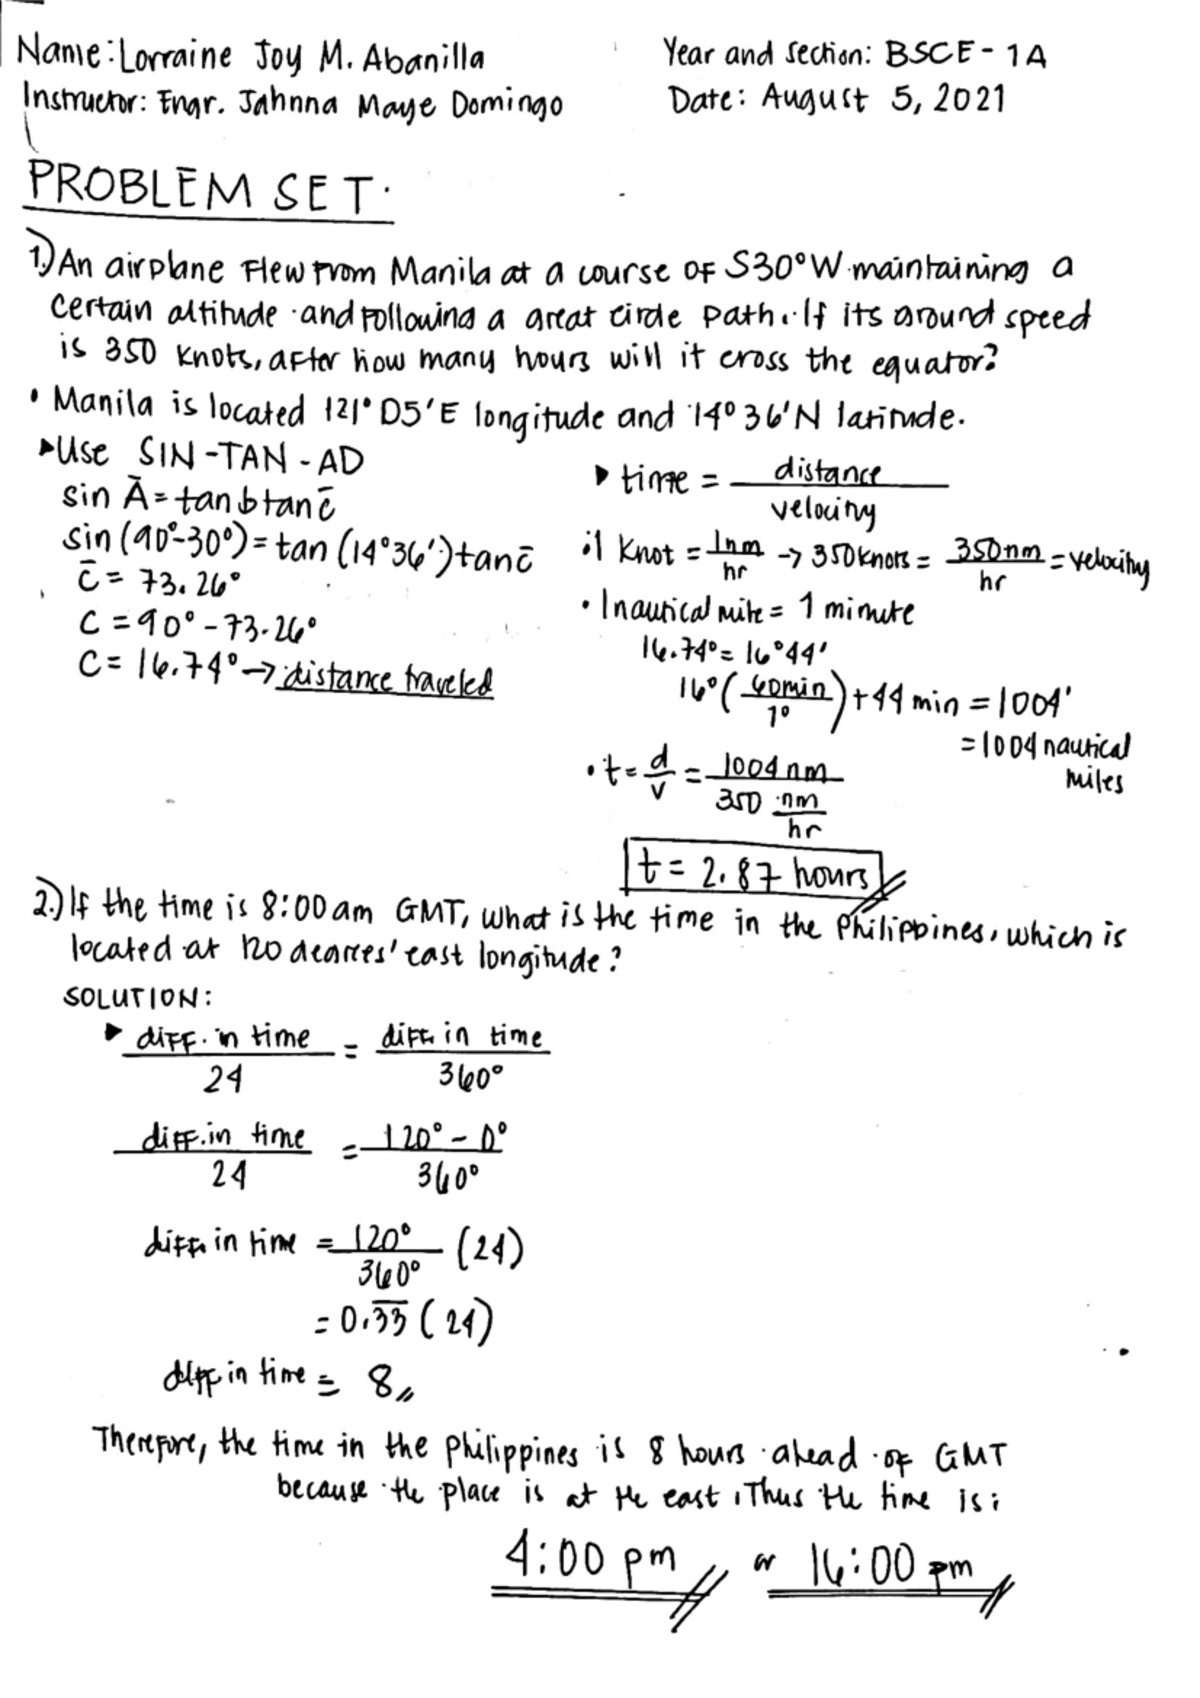 Name: Lorraine Joy M. Abanilla
Year and section: BSCE - 1A
Instructor: Engr. Jahnna Maye Domingo
Date: August 5, 2021
PROBLEM SET.
1.) An airplane flew from Manila at a course of S30°W maintaining a
certain altitude and following a great circle path. If its ground speed
is 350 knots, after how many hours will it cross the equator?
• Manila is located 121° 05'E longitude and 14° 36'N latitude.
▶ Use SIN-TAN-AD
sin Ā = tan b tan c̄
sin (90°-30°) = tan (14°36') tan c̄
c̄ = 73.26°
C = 90° - 73.26°
C = 16.74° → distance traveled
▶ time = distance / velocity
• 1 knot = 1nm / hr → 350 knots = 350 nm / hr = velocity
• 1 nautical mile = 1 minute
16.74° = 16°44'
16° (60min / 1°) + 44 min = 1004'
= 1004 nautical
miles
• t = d / v = 1004 nm / 350 nm / hr
t = 2.87 hours
2.) If the time is 8:00 am GMT, what is the time in the Philippines, which is
located at 120 degrees' east longitude?
SOLUTION:
▶ diff. in time / 24 = diff. in time / 360°
diff. in time / 24 = 120° - 0° / 360°
diff. in time = 120° / 360° (24)
= 0.33 (24)
diff in time = 8
Therefore, the time in the Philippines is 8 hours ahead of GMT
because the place is at the east. Thus the time is:
4:00 pm or 16:00 pm